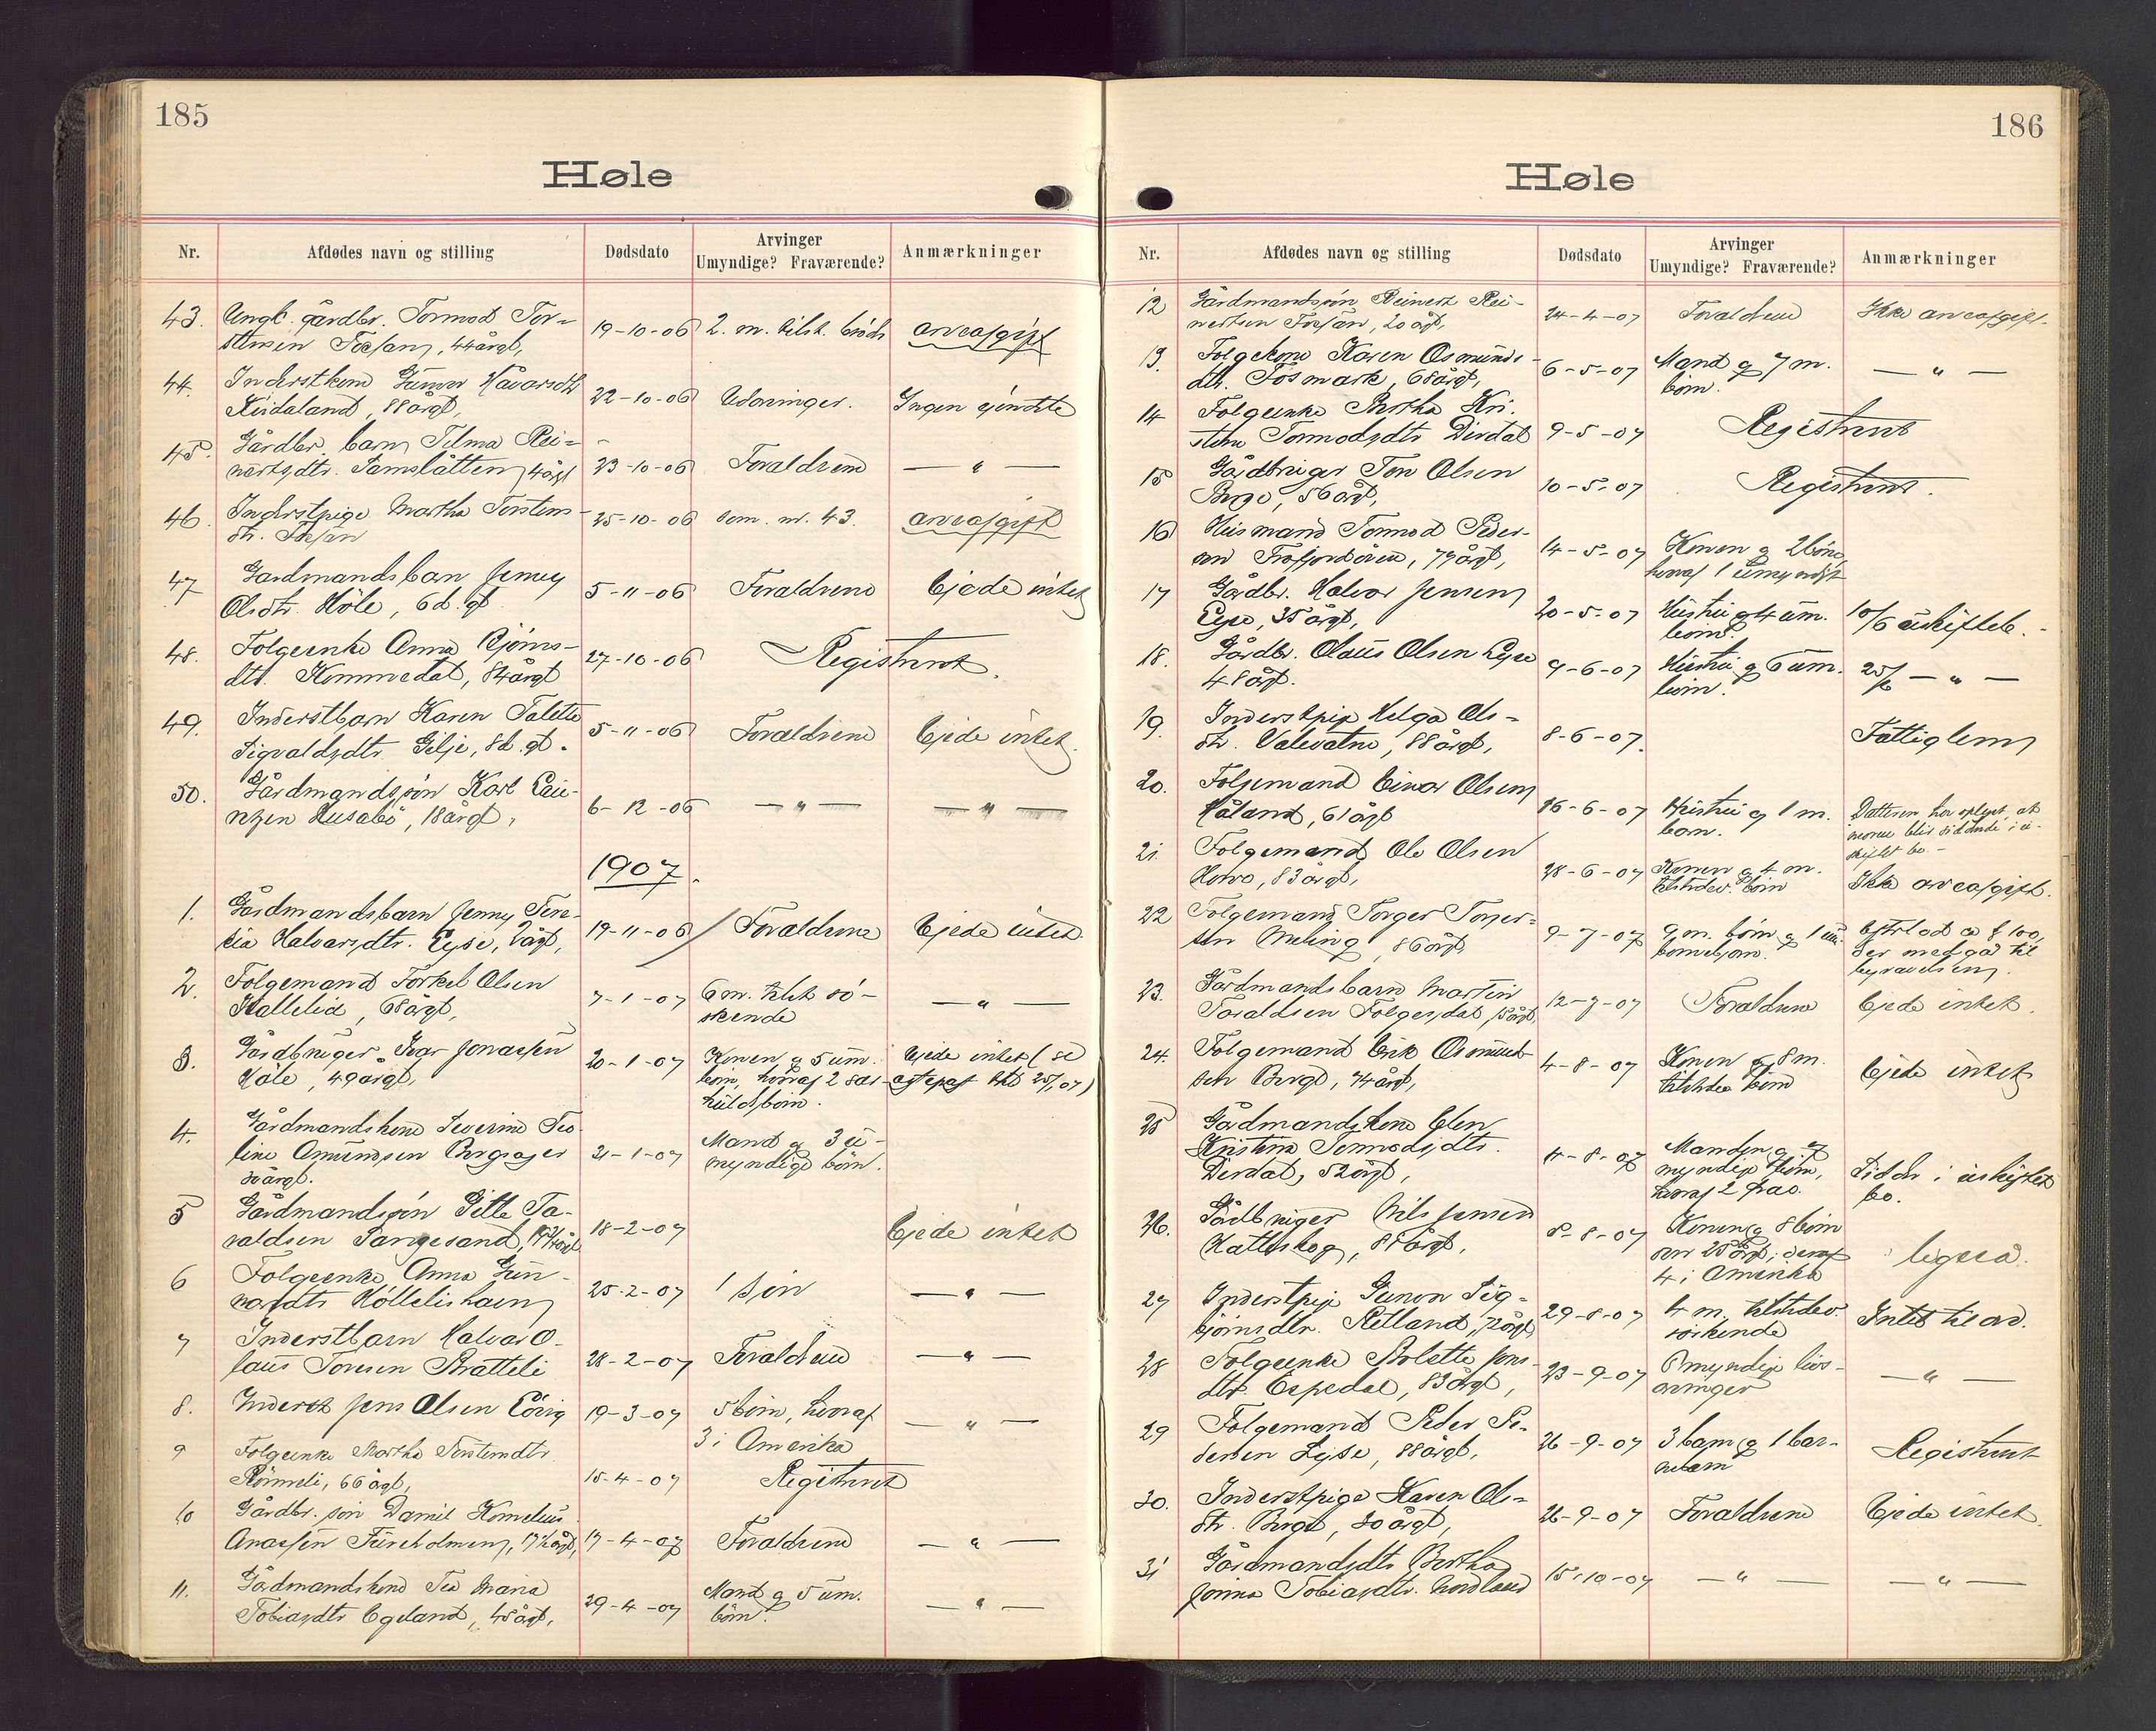 185
Høle
Nr. Afdødes navn og stilling Dødsdato Arvinger Umyndige? Fraværende? Anmærkninger
43. Ungk. gårdbr. Tormod Tor-
stensen Frafjord, 44 årgl, 19-10-06 2. m. tilst. brødr. arveafgift
44. Inderstkone Gunvor Håvarsdtr
Kindaland, 88 årgl, 22-10-06 Udarvinger. Ingen ejendele
45. Gårdbr. barn Tilma Rei-
nertsdtr. Samslåtten, 4 årgl 23-10-06 Forældrene — " —
46. Inderstpige Martha Torstens-
dtr. 25-10-06 som nr. 43. arveafgift
47 Gardmandsbarn Jenny
Olsdtr. Høle, 6 d. gl. 5-11-06 Forældrene Ejede intet
48. Folgeenke Anna Bjørns-
dtr. Kommedal, 84 årgl 27-10-06 Registrert.
49. Inderstbarn Karen Talette
Sigvaldsdtr. Gilje, 8 d. gl. 5-11-06 Forældrene Ejede intet.
50. Gårdmandssøn Karl
Husabø, 18 årgl, 6-12-06 — " — — " —
1907.
1. Gårdmandsbarn Jenny Tere-
sia Halvarsdtr. Lyse, 2 årgl, 19-11-06 Forældrene Ejede intet.
2. Folgemand Torkel Olsen
Hallelid, 68 årgl, 7-1-07 6 m. tilst. sø-
skende — " —
3. Gårdbruger Ivar Jonassen
Høle, 49 årgl, 20-1-07 Konen og 5 um.
børn, hvoraf 2 sær-
kuldsbørn. Ejede intet (se
25/1 07)
4. Gårdmandskone Severine Teo-
line Amundsen Bergsager
30 årgl. 21-1-07 Mand og 3 u-
myndige børn.
5 Gårdmandssøn Gitle Ta-
raldsen Sangesand, 18-2-07 Ejede intet
6 Folgeenke Anna Gun-
narsdtr Høllelishaem 25-2-07 1 søn — " —
7 Inderstbarn Halvar O-
laus Tonsen Bratteli 28-2-07 Forældrene — " —
8. Inderst Jens Olsen Eövig 19-3-07 5 børn, hvoraf
3 i Amerika — " —
9 Folgeenke Martha Torstensdtr.
Römmeli, 66 årgl, 15-4-07 Registrert
10 Gårdbr. søn Daniel Kornelius
Anassen Fureholmen, 17½ årgl, 17-4-07 Forældrene — " —
11. Gårdmandskone Tea Maria
Tobiasdtr Egeland, 45 årgl, 29-4-07 Mand og 5 um.
børn. — " —
186
Høle
Nr. Afdødes navn og stilling Dødsdato Arvinger Umyndige? Fraværende? Anmærkninger
12 Gårdmandssøn Reinert Rei-
nertsen Frafjord, 20 årgl, 24-4-07 Forældrene Ikke arveafgift.
13. Folgekone Karen Osmunds-
dtr. Fosmark, 68 årgl, 6-5-07 Mand og 7 m.
børn. — " —
14 Folgeenke Bertha Kri-
stine Tormodsdtr Dirdal 9-5-07 Registrert
15 Gårdbruger Tore Olsen
Berge, 56 årgl, 10-5-07 Registrert.
16 Husmand Tormod Peder-
sen Frafjordøren, 79 årgl, 14-5-07 Konen og 2 børn,
hvoraf 1 umyndigt
17 Gårdbr. Halvor Jensen
Lyse, 35 årgl, 20-5-07 Hustru og 4 um.
børn. 10/6 uskifteb. -
18. Gårdbr. Olaus Olsen Lyse
48 årgl. 9-6-07 Hustru og 6 um.
børn. 25/6 — " —
19. Inderstpige Helga Ols-
dtr. Valevatne, 88 årgl, 8-6-07. Fattiglem
20. Folgemand Einar Olsen
Håland, 61 årgl 16-6-07 Hustru og 1 m.
barn. Datteren har oplyst, at
moren blir siddende i u-
skiftet bo. -
21. Folgemand Ole Olsen
83 årgl, 28-6-07 Konen og 4 m.
tilstedev. børn Ikke arveafgift.
22 Folgemand Torger Torger-
sen Meling, 86 årgl 9-7-07 9 m. børn og 1 um.
barnebarn. Efterlod ca k 100,
der medgår til
begravelsen.
23. Gårdmandsbarn Martin
Taraldsen Folgesdal, 12-7-07 Forældrene Ejede intet.
24. Folgemand Erik Osmund-
sen Berge, 74 årgl, 4-8-07 Konen og 8 m.
tilstedev. børn Ejede intet
25 Gårdmandskone Elen
Kristine Tormodsdtr.
Dirdal, 52 årgl, 4-8-07 Manden og 7
myndige børn,
hvoraf 2 frav. Sidder i uskiftet
bo.
26. Gårdbruger Nils Jensen
Hatleskog, 8-8-07 Konen og 8 børn
over 25 årgl; deraf
4 i Amerika ligeså.
27 Inderstpige Gunvor Sig-
bjørnsdtr. Retland, 72 årgl 29-8-07 4 m. tilstedev.
søskende Intet til arv.
28 Folgeenke Bolette Jons-
dtr. Espedal, 83 årgl, 23-9-07 6 myndige livs-
arvinger — " —
29 Folgemand Peder Pe-
dersen Lyse, 88 årgl, 26-9-07 3 barn og 1 bar-
nebarn Registrert
30. Inderstpige Karen Ols-
dtr. Berge, 30 årgl, 26-9-07 Forældrene Ejede intet.
31 Gårdmandsdtr Bertha
Jonna Tobiasdtr. Nordland 15-10-07 — " — — " —